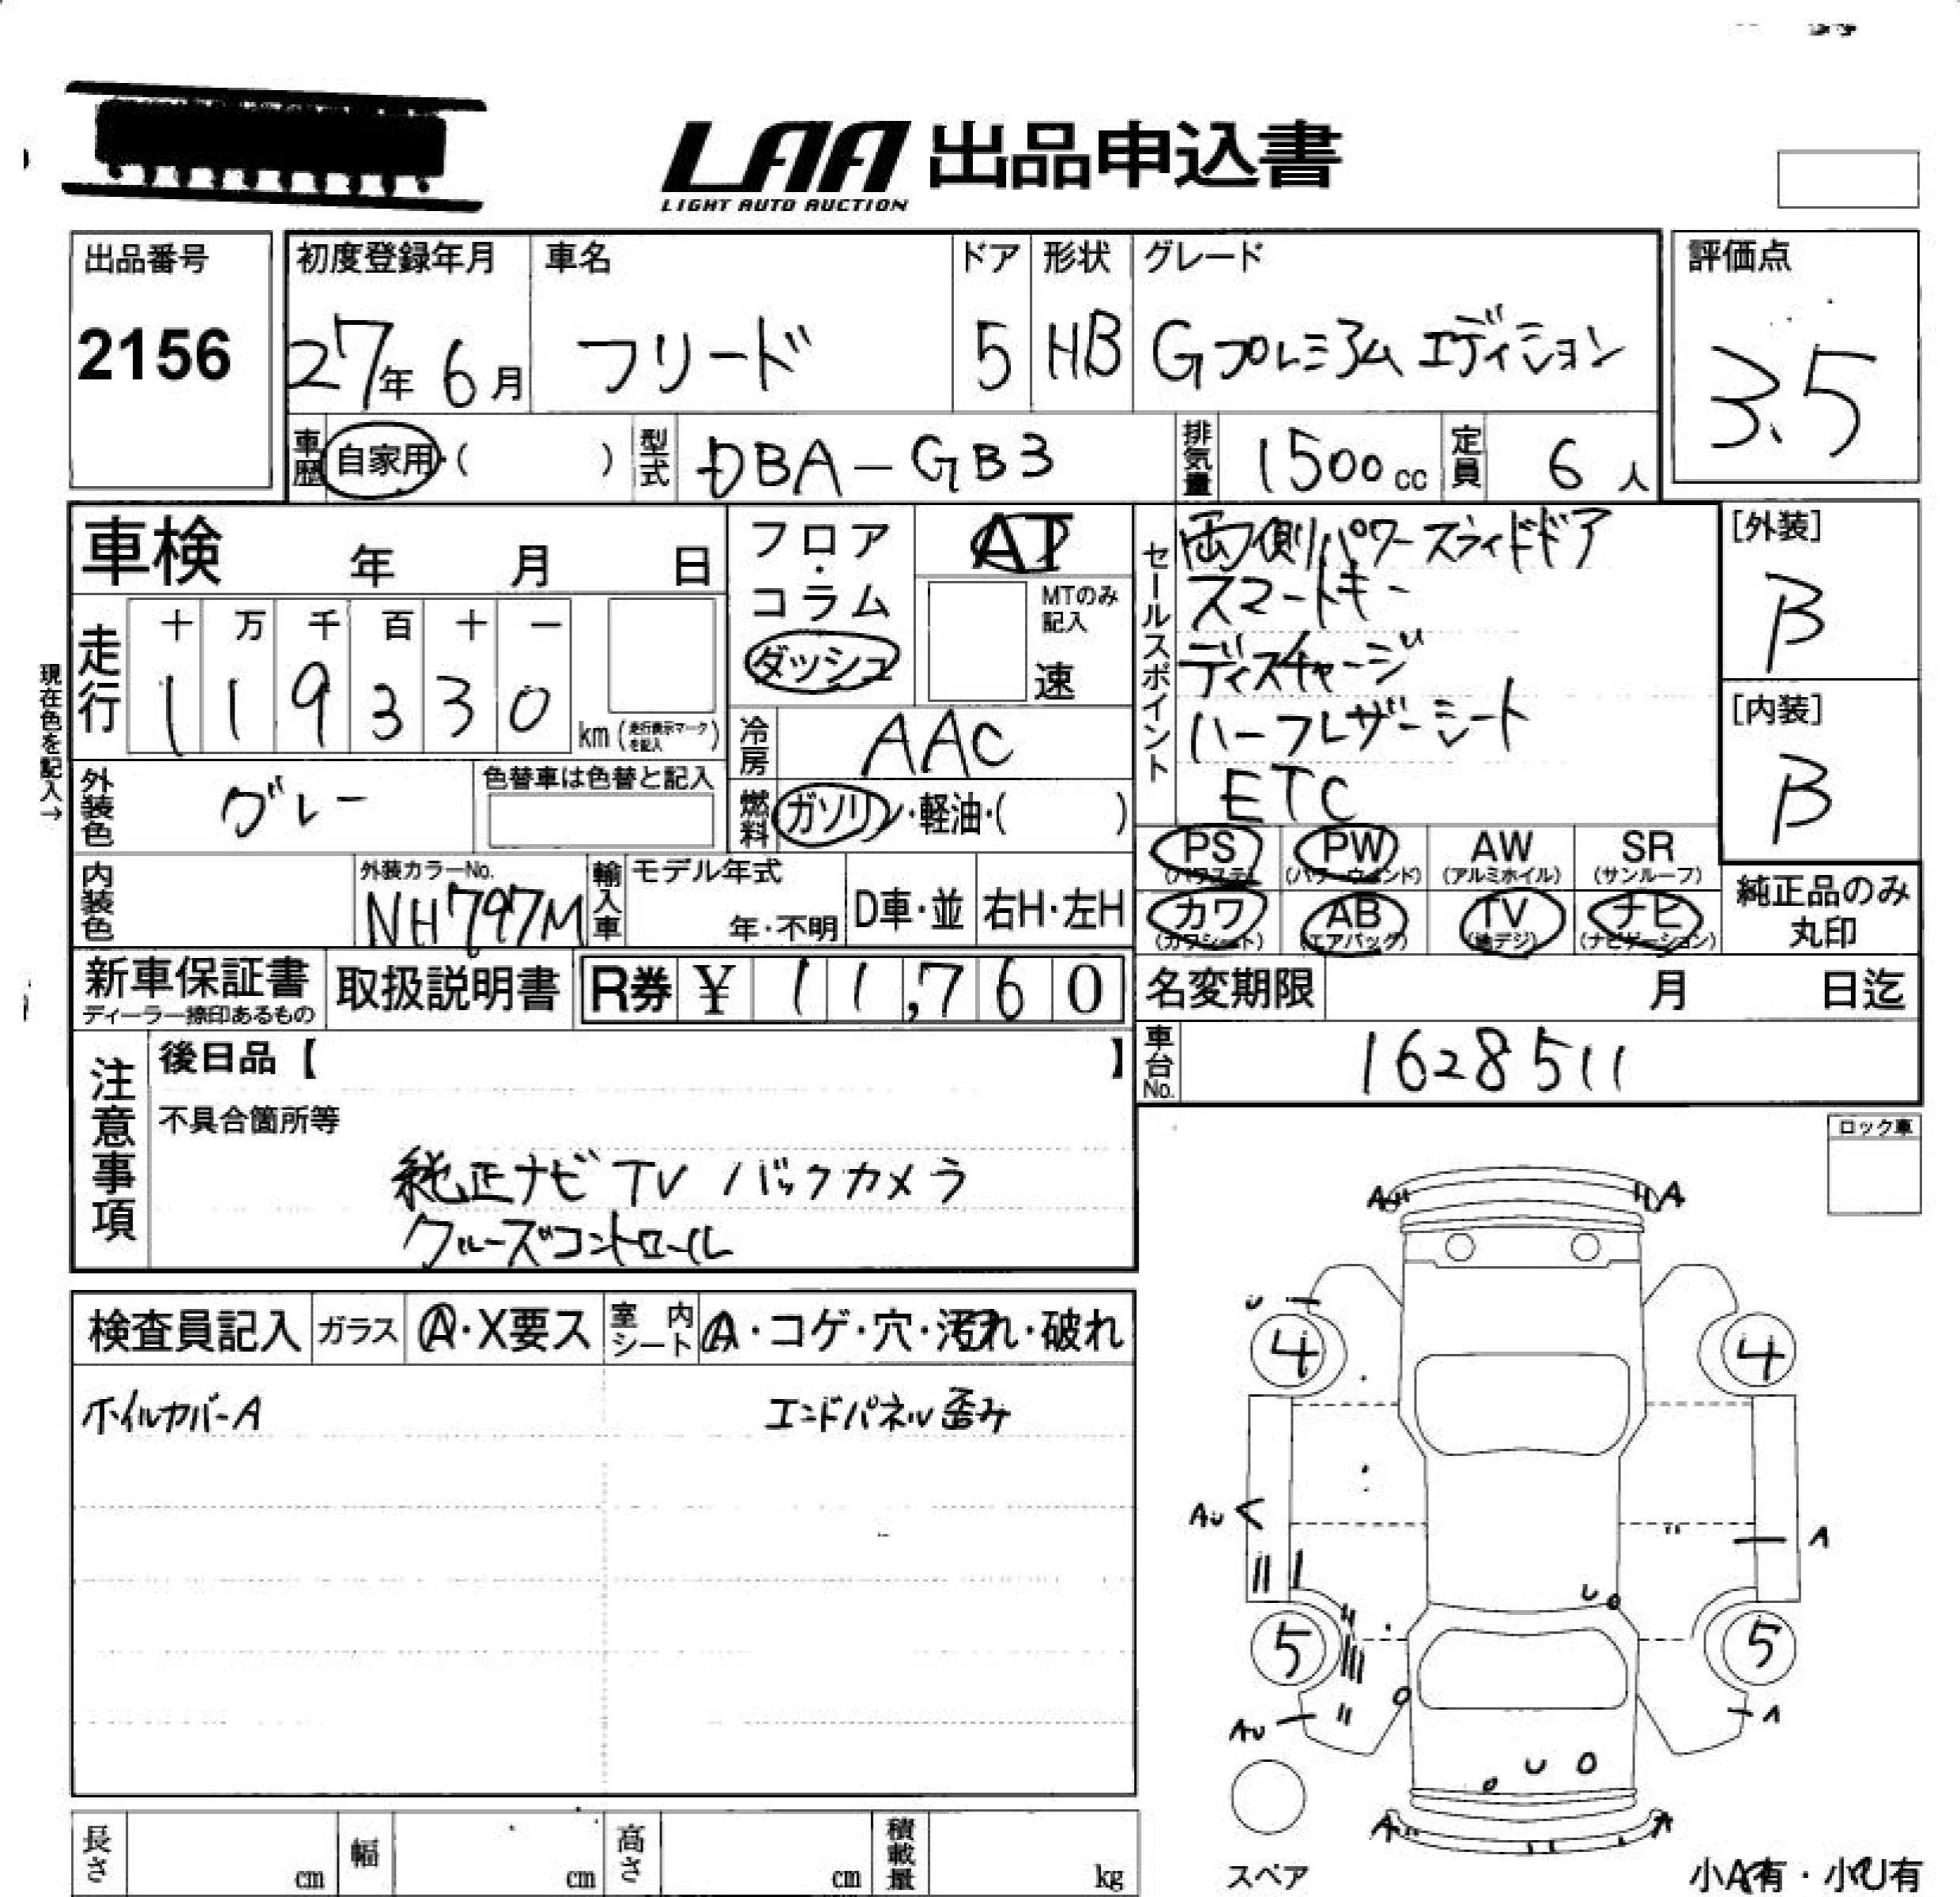 LAA 出品申込書
LIGHT AUTO AUCTION
出品番号
2156
初度登録年月
27年 6月
車名
フリード
ドア
5
形状
HB
グレード
Gプレミアム エディション
評価点
3.5
車歴
自家用・( )
型式
DBA-GB3
排気量
1500cc
定員
6人
車検 年 月 日
フロア・コラム
ダッシュ
AT
MTのみ記入
速
セールスポイント
両側パワースライドドア
スマートキー
ディスチャージ
ハーフレザーシート
ETC
[外装]
B
[内装]
B
現在色を記入→
走行
十 万 千 百 十 一
1 1 9 3 3 0 km (走行表示マークを記入)
冷房
AAC
外装色
グレー
色替車は色替と記入
燃料
ガソリン・軽油・( )
PS PW AW SR
(パワステ) (パワーウィンド) (アルミホイル) (サンルーフ)
カワ AB TV ナビ
(カワシート) (エアバッグ) (地デジ) (ナビゲーション)
純正品のみ
丸印
内装色
外装カラーNo.
NH797M
輸入車
モデル年式
年・不明
D車・並
右H・左H
新車保証書
ディーラー捺印あるもの
取扱説明書
R券 ¥ 11,760
名変期限 月 日迄
車台No.
1628511
注意事項
後日品【 】
不具合箇所等
純正ナビ TV バックカメラ
クルーズコントロール
ロック車
検査員記入
ガラス
A・X要ス
室内シート
A・コゲ・穴・汚れ・破れ
ホイルカバーA
エンドパネル歪み
A A
U
4 4
AU A
U
5 5
AU A
U
A A
スペア
小A有・小U有
長さ cm
幅 cm
高さ cm
積載量 kg